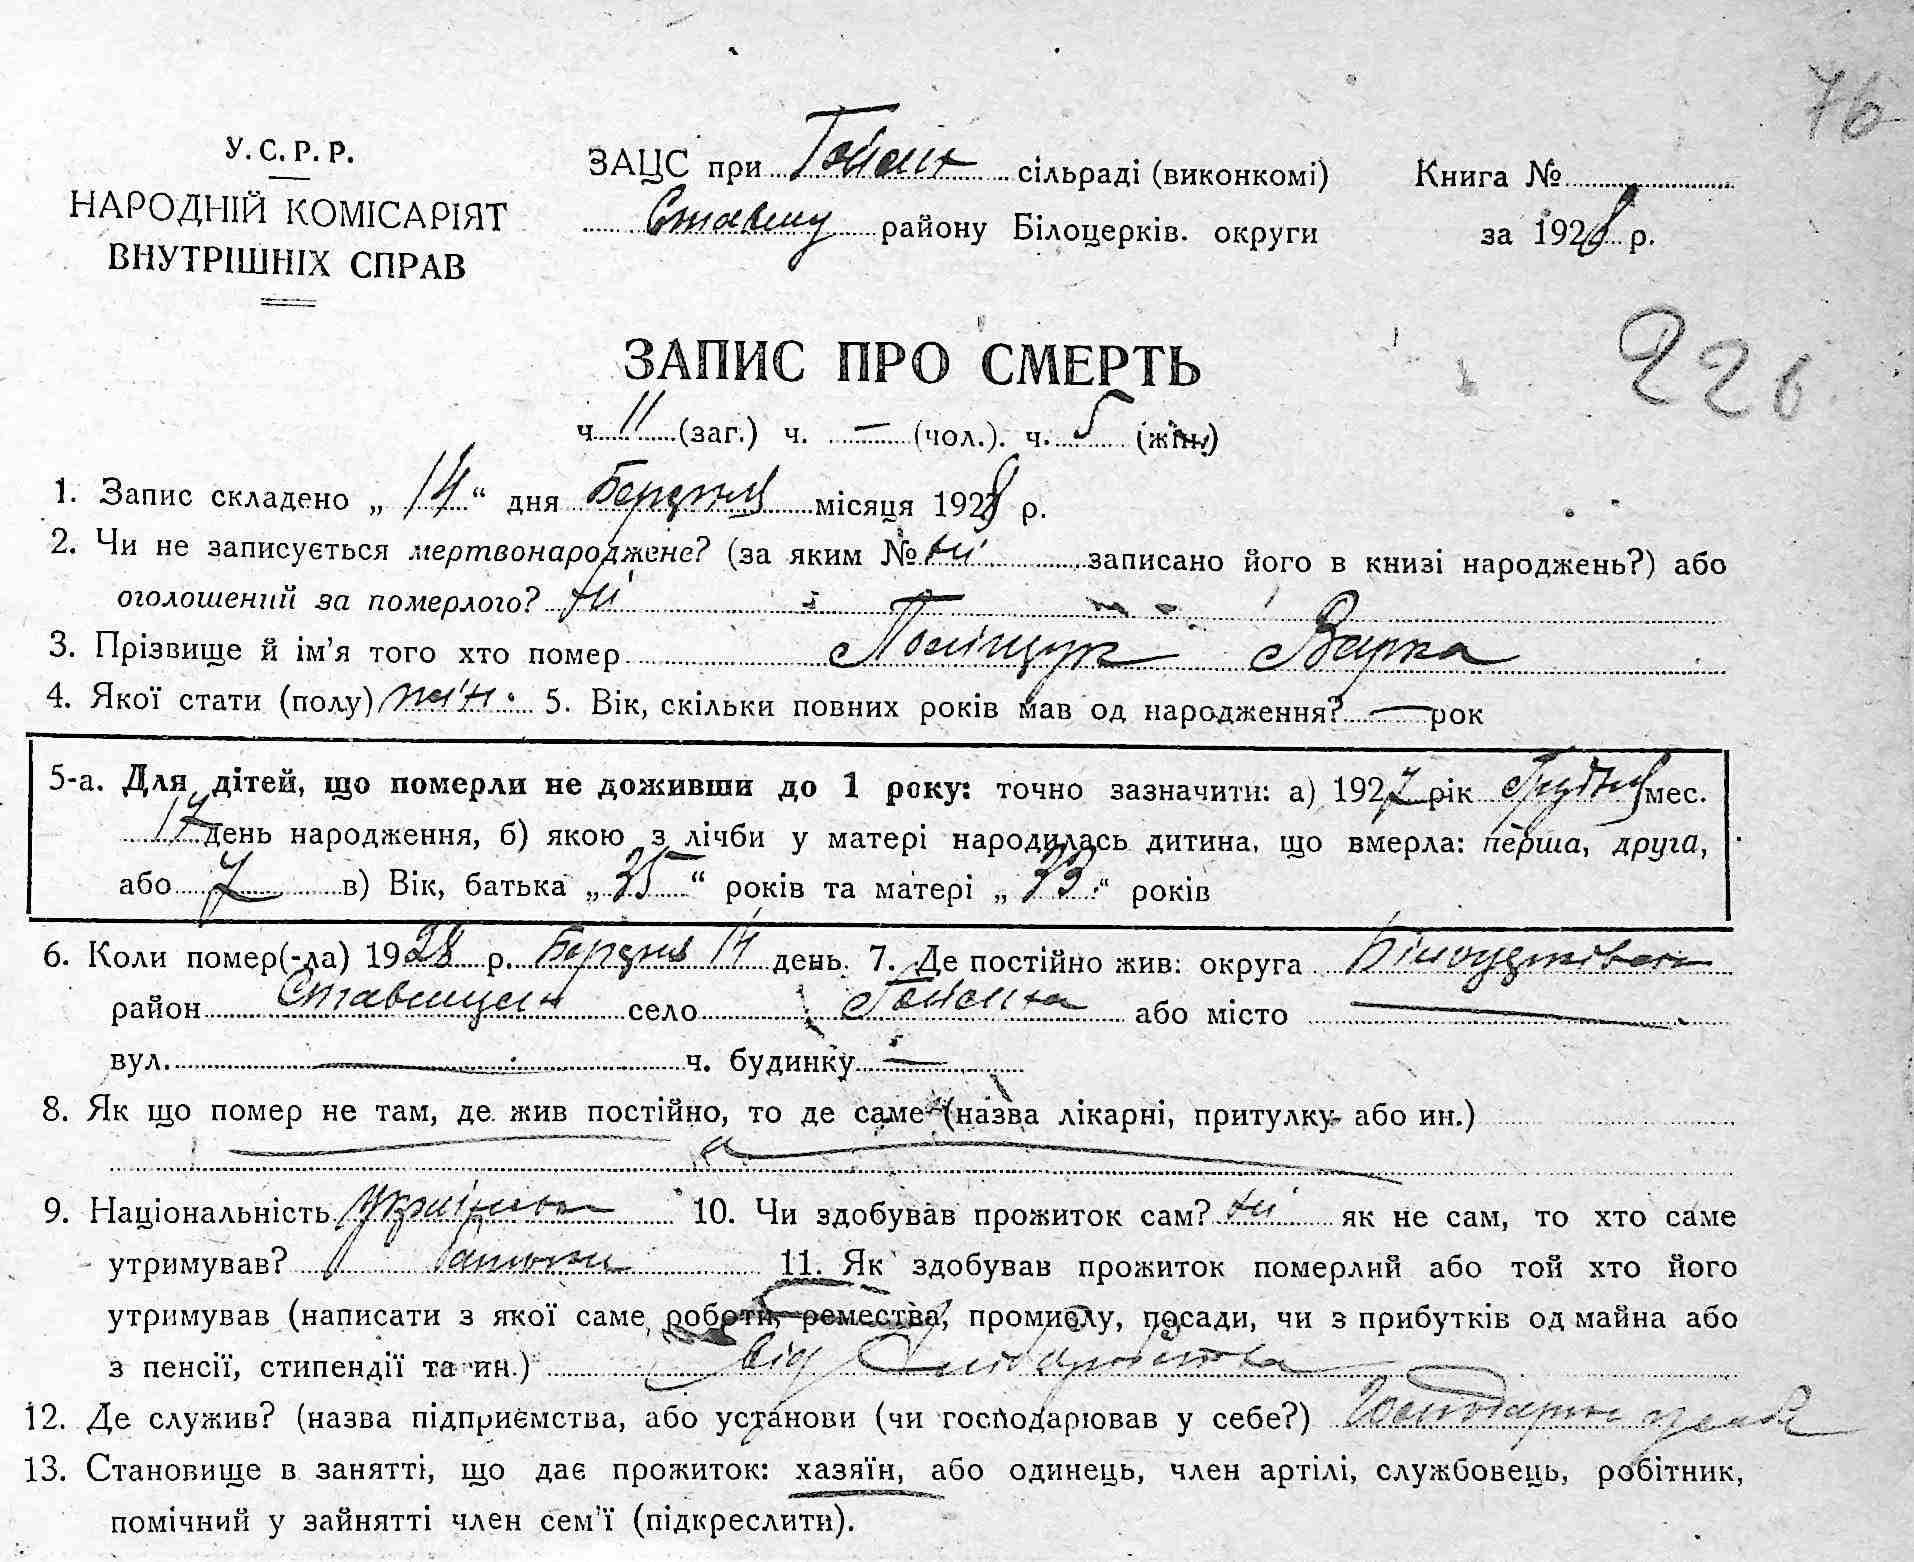 76
У.С.Р.Р.
НАРОДНІЙ КОМІСАРІЯТ
ВНУТРІШНІХ СПРАВ
ЗАЦС при сільраді (виконкомі)
району Білоцерків. округи
Книга №
за 1928 р.
226
ЗАПИС ПРО СМЕРТЬ
ч. 11 (заг.) ч. — (чол.). ч. 5 (жін.)
1. Запис складено „ 14 “ дня Березня місяця 1928 р.
2. Чи не записується мертвонароджене? (за яким № ні записано його в книзі народжень?) або
оголошений за померлого? ні
3. Прізвище й ім'я того хто помер Поліщук Варка
4. Якої стати (полу) жін. 5. Вік, скільки повних років мав од народження? — рок
5-а. Для дітей, що померли не доживши до 1 року: точно зазначити: а) 1927 рік Грудня мес.
17 день народження, б) якою з лічби у матері народилась дитина, що вмерла: перша, друга,
або 7 в) Вік, батька „ 35 “ років та матері „ 33 “ років
6. Коли помер(-ла) 1928 р. Березня 14 день. 7. Де постійно жив: округа
район село або місто —
вул. — ч. будинку —
8. Як що помер не там, де жив постійно, то де саме (назва лікарні, притулку або ин.)
9. Національність 10. Чи здобував прожиток сам? ні як не сам, то хто саме
утримував? батьки 11. Як здобував прожиток померлий або той хто його
утримував (написати з якої саме роботи, ремества, промислу, посади, чи з прибутків од майна або
з пенсії, стипендії та ин.) від
12. Де служив? (назва підприємства, або установи (чи господарював у себе?)
13. Становище в занятті, що дає прожиток: хазяїн, або одинець, член артілі, службовець, робітник,
помічний у зайнятті член сем'ї (підкреслити).